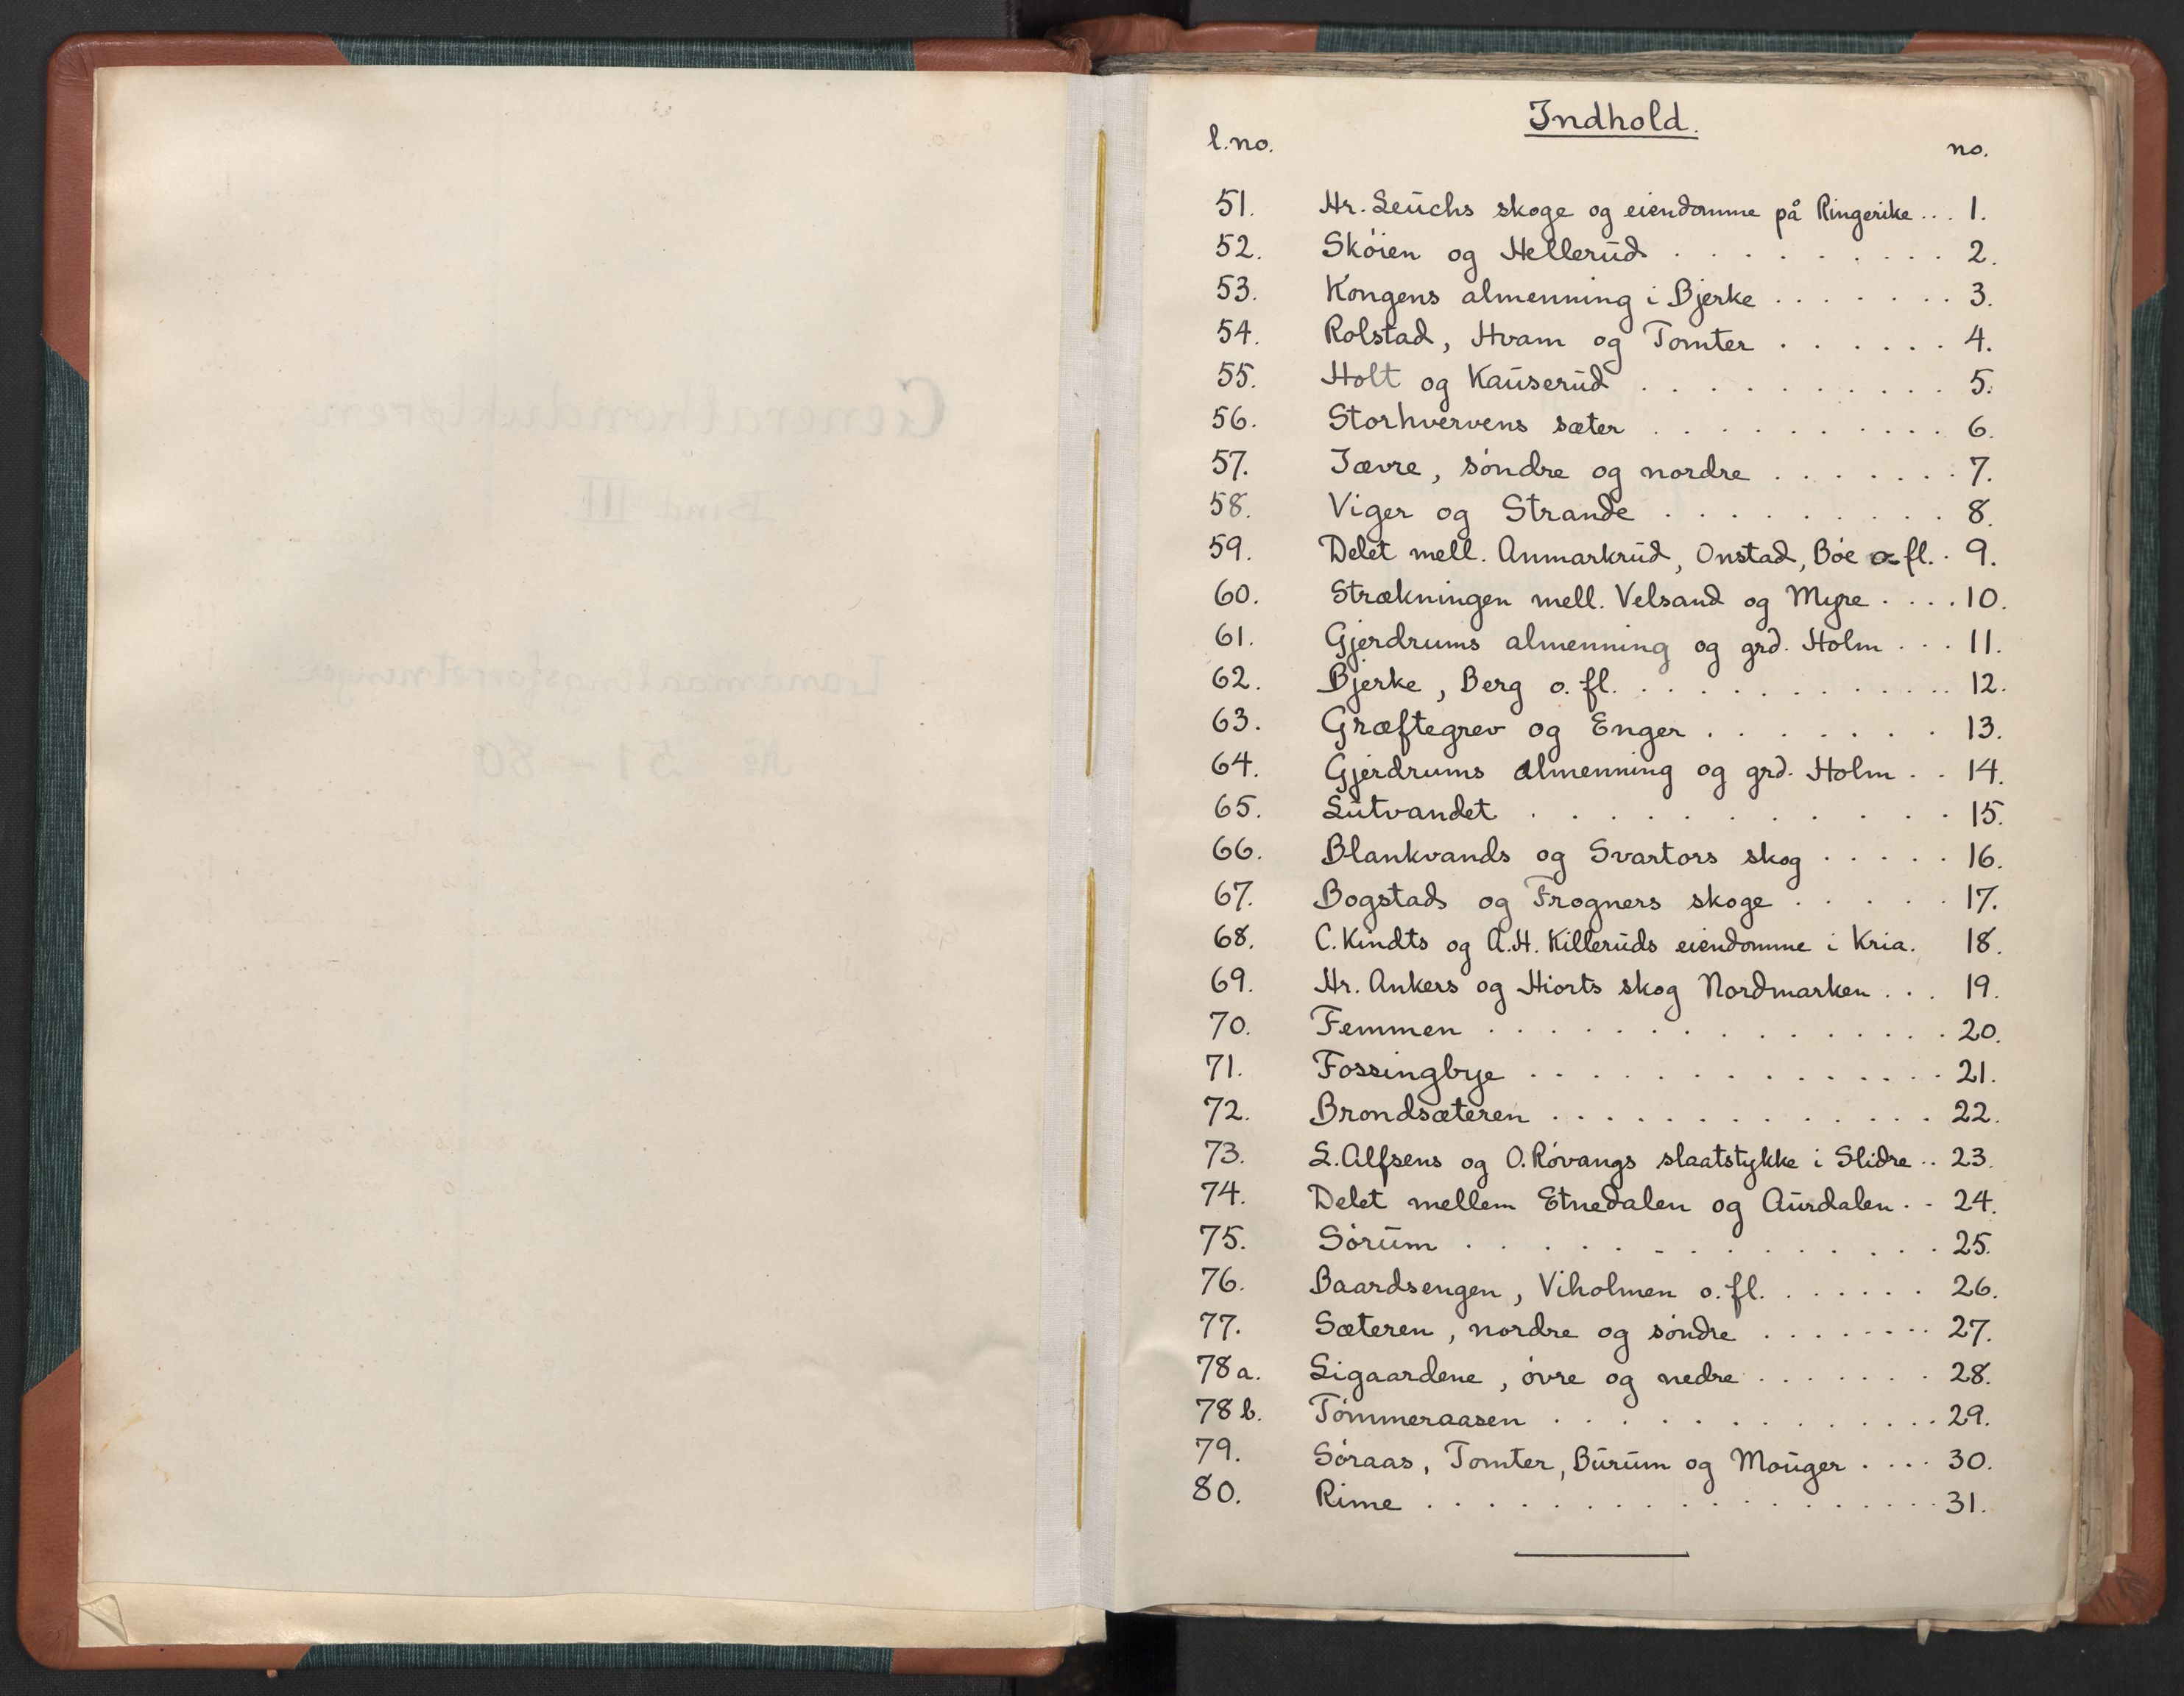 Indhold.
l.no. no.
51. Hr. Leuchs skoge og eiendomme på Ringerike ... 1.
52. Skóien og Hellerud . . . . . . . . . 2.
53. Kongens almenning i Bjerke . . . . . . . 3.
54. Rolstad, Hvam og Tomter . . . . . . 4.
55. Holt og Kauserud . . . . . . . . . . 5.
56. Storhvervens sæter . . . . . . . . . . 6.
57. Jævre, sóndre og nordre . . . . . . . 7.
58. Viger og Strande . . . . . . . . . 8.
59. Delet mell. Anmarkrud, Onstad, Bóe o. fl. . 9.
60. Strækningen mell. Velsand og Myre . . . . 10.
61. Gjerdrums almenning og grd. Holm . . . 11.
62. Bjerke, Berg o. fl. . . . . . . . . . . . 12.
63. Græftegrev og Enger . . . . . . . 13.
64. Gjerdrums almenning og grd. Holm . . 14.
65. Lutvandet . . . . . . . . . . . . 15.
66. Blankvands og Svartors skog . . . . . 16.
67. Bogstads og Frogners skoge . . . . . 17.
68. C. Kindts og A.H. Killeruds eiendomme i Kria. 18.
69. Hr. Ankers og Hiorts skog Nordmarken . . . 19.
70. Femmen . . . . . . . . . . . . . 20.
71. Fossingbye . . . . . . . . . . . . . . 21.
72. Brondsæteren . . . . . . . . . . . . 22.
73. L. Alfsens og O. Róvangs slaatstykke i Slidre .. 23.
74. Delet mellem Etnedalen og Aurdalen . . 24.
75. Sórum . . . . . . . . . . . . . 25.
76. Baardsengen, Viholmen o. fl. . . . . . . 26.
77. Sæteren, nordre og sóndre . . . . . . . . 27.
78 a. Ligaardene, óvre og nedre . . . . . . . 28.
78 b. Tómmeraasen . . . . . . . . . . . . 29.
79. Sóraas, Tomter, Burum og Mouger . . . . 30.
80. Rime . . . . . . . . . . . . . . . . . 31.